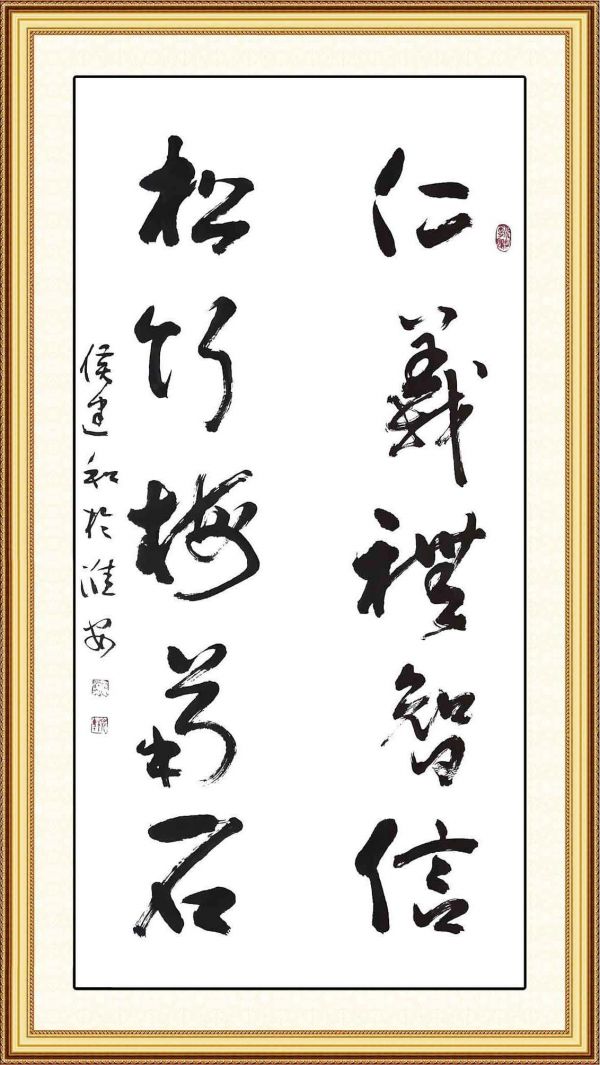 仁義禮智信
松竹梅菊石
侯建和於淮安